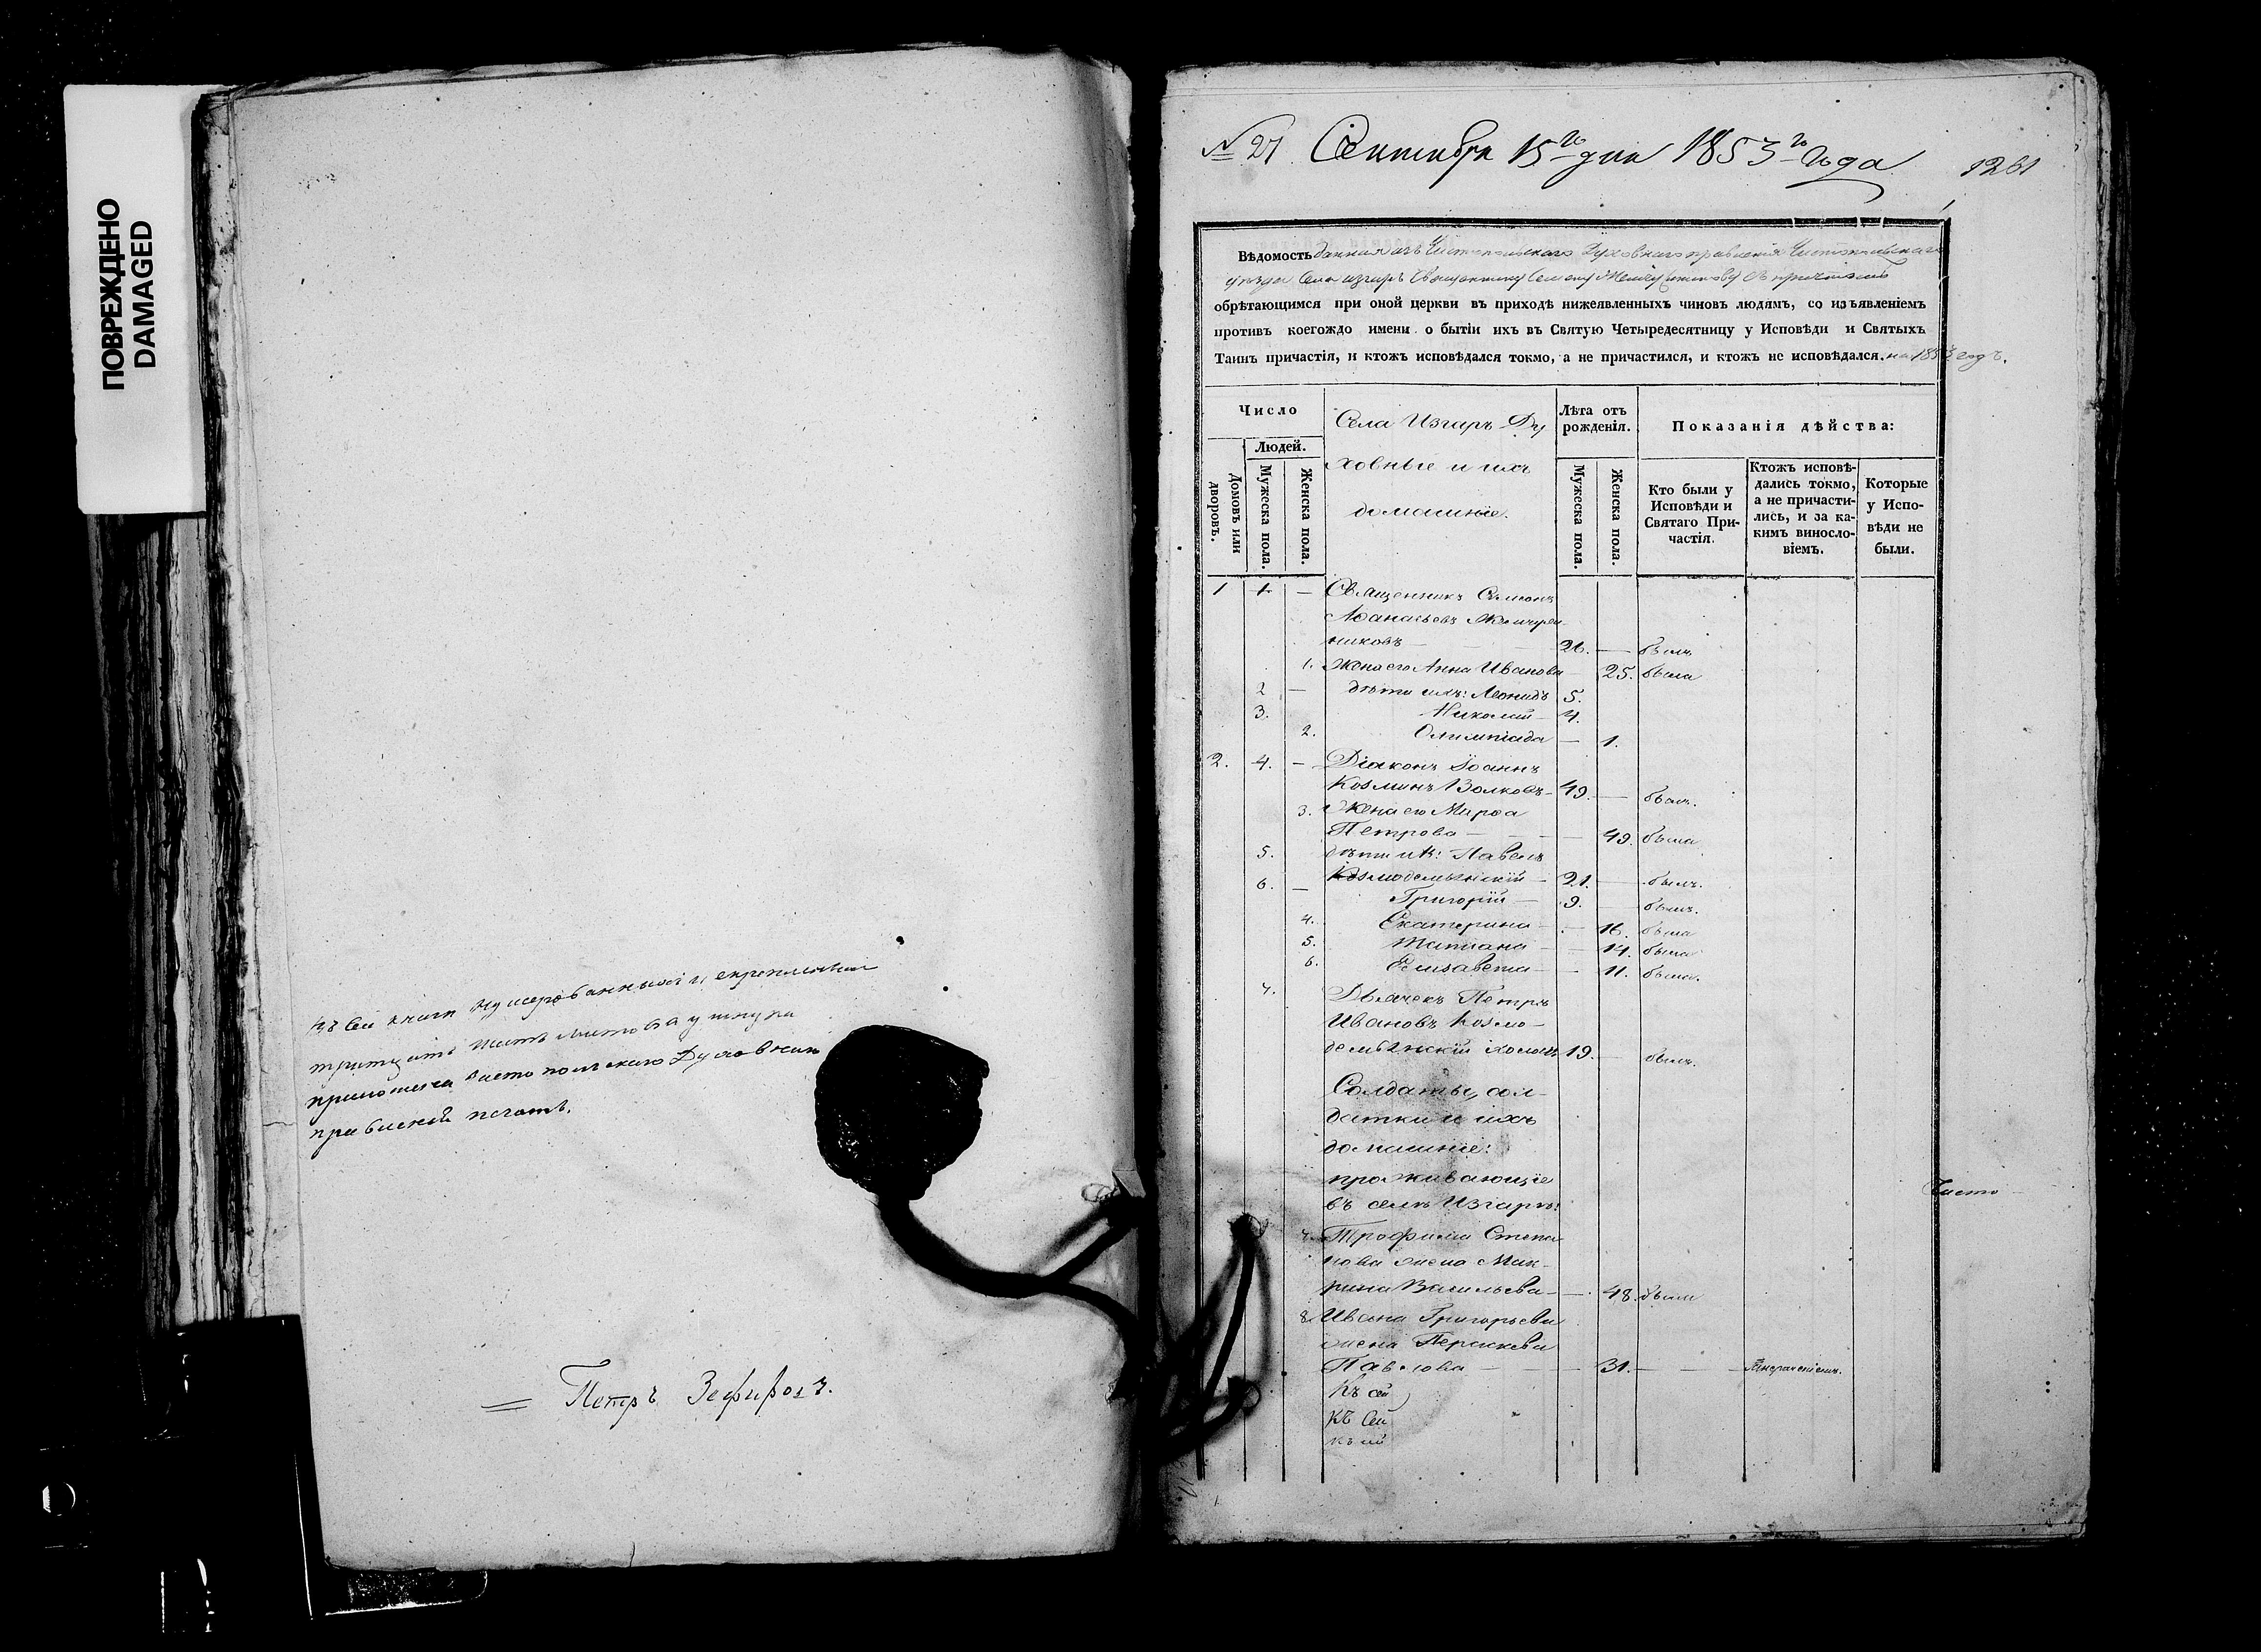 ПОВРЕЖДЕНО
DAMAGED
Къ сей книги нумерованной и скрепленной
тритцать листова у шнура
приложена Чистопольскаго Духовнаго
правленiя печать.
Петръ Зефировъ.
№ 27 Сентября 15го дня 1853го Года
1261
Вѣдомость данная изъ Чистопольскаго Духовнаго правленія Чистопольскаго
уѣзда села Изгаръ Священнику Семену Жемчужникову съ причтомъ
обрѣтающимся при оной церкви въ приходѣ нижеявленныхъ чиновъ людямъ, со изъявленіемъ
противъ коегождо имени о бытіи ихъ въ Святую Четыредесятницу у Исповѣди и Святыхъ
Таинъ причастія, и ктожъ исповѣдался токмо, а не причастился, и ктожъ не исповѣдался. на 1853 годъ.
Число
Людей.
Домовъ или дворовъ.
Мужеска пола.
Женска пола.
Села Изгаръ Ду
ховные и ихъ
домашніе.
Лѣта отъ рожденія.
Мужеска пола.
Женска пола.
Показанія дѣйства:
Кто были у Исповѣди и Святаго Причастія.
Ктожъ исповѣдались токмо, а не причастились, и за какимъ винословіемъ.
Которые у Исповѣди не были.
1 1 — Священникъ Симеонъ
Аѳанасьевъ Жемчуж
никовъ 26. — былъ
1. Жена его Анна Иванова — 25. была
2 — дѣти ихъ: Леонидъ 5.
3. Николай — 4.
2. Олимпіада — 1.
2. 4. — Діаконъ Іоаннъ
Козминъ Волковъ — 49. — былъ.
3. Жена его Марѳа
Петрова — 49. была
5. дѣти ихъ: Павелъ
Козмодемьянскій — 21. — былъ.
6. — Григорій — 9. — былъ.
4. Екатерина — 16. была
5. Татіана — 14. была
6. Елизавета — 11. была.
7. Дьячекъ Петръ
Ивановъ Козмо-
демьянскій холостъ 19. — былъ.
Солдаты, сол-
датки и ихъ
домашніе:
проживающіе
въ селѣ Изгарѣ:
Чисто
7. Трофима Степа
нова жена Мак-
рина Васильева — 48. была
8. Ивана Григорьева
жена Параскева
Павлова — 31. —
Къ сей
Къ Сей
къ сей